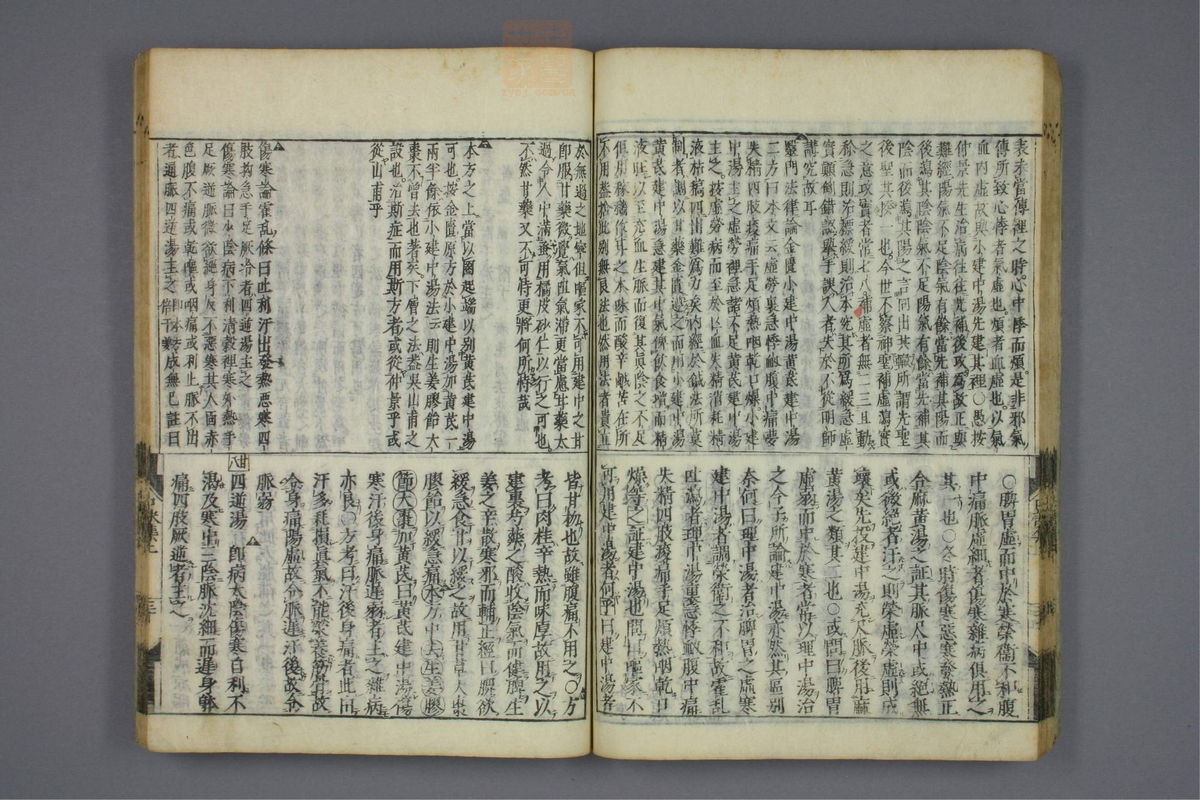 表未當傳裡之時心中悸而煩是非邪氣
傳所致心悸者氣虛也煩者血虛也以氣
血內虛故與小建中湯先建其裡〇愚按
仲景先生治病往往先補後攻爲故正與
難經陽氣不足陰氣有餘當先補其陽而
後瀉其陰陰氣不足陽氣有餘當先補其
陰而後瀉其陽之言同出其軄所謂先聖
後聖其揆一也今世不察神聖補虛瀉實
之意攻實者常七八補虛者無二三且動
於急則治標緩則治本
實顚倒錯誤藥手誤人者失於不從明師
講究故耳
醫門法律論金匱小建中湯黃芪建中湯
二方曰本文云虛勞裏急悸衄腹中痛夢
失精四肢痠痛手足煩熱咽乾口燥小建
中湯主之虛勞裡急諸不足黃芪建中湯
主之按虛勞病而至於亡血失精消耗精
液枯槁四出難爲力矣內經於鍼藥所莫
制者調以甘藥金匱遵之而用小建中湯
黃芪建中湯急建其中氣俾飲食增而精
血
俱用稼穡作甘之本味而酸辛鹹苦在所
不用舍於此別無良法也然用法者貴立
〇脾胃虛而中於寒榮衞不利腹
中痛脈虛細者傷寒雜病俱用之
其一也〇冬時傷寒惡寒發熱正
合麻黃湯之証其脈人中或絕無
或後絕者汗之則榮虛榮虛則成
壞矣先投建中湯充大脈後用麻
黃湯之類其二也〇或問曰脾胃
虛弱而中於寒者當以理中湯治
之今子所論建中湯亦然其區別
奈何曰理中湯者治脾胃之虛寒
建中湯者調榮衛之不和故霍亂
吐瀉者理中湯裏急悸衄腹中痛
失精四肢痠痛手足煩熱咽乾口
燥等之証建中湯也問曰嘔家不
可用建中湯者何乎曰建中湯者
於無過之地寧但嘔家不可用建中之甘
即服甘藥微覺氣阻氣滯更當慮甘藥太
過令人中滿蚤用橘皮砂仁以行之可也
不然甘藥又不可恃更將何所恃哉
本方之上當以圈起端以別黃芪建中湯
可也按金匱原方於小建中湯加黃芪一
兩半餘依小建中湯法云則生姜膠飴大
棗不曾去也者矣下層之法葢吳山甫之
設也治斯症而用斯方者或從仲景乎或
從山甫乎
傷寒論霍乱條曰吐利汗出發熱惡寒四
肢拘急手足厥冷者四逆湯主之
傷寒論曰少陰病下利清穀裡寒外熱手
足厥逆脈微欲絕身反不惡寒其人面赤
色腹不痛或乾嘔或咽痛或利止脈不出
者通脈四逆湯主之即本方成無已註曰
皆甘物也故雖腹痛不用之〇方
考曰肉桂辛熱而味厚故用之以
建裏芍藥之酸收陰氣而健脾生
姜之辛散寒邪而輔正經曰脾欲
緩急食甘以緩之故用甘草大棗
膠飴以緩急痛本方中去生姜膠
飴大棗加黃芪曰黃芪建中湯傷
寒汗後身痛脈遲弱者主之雜病
亦良〇方考曰汗後身痛者此由
汗多耗損真氣不能榮養筋骨故
令身痛陽虛故令脈遲汗後故令
脈弱
廿八
四逆湯 即病太陰傷寒自利不
渴及寒中三陰脈沈細而遲身體
痛四肢厥逆者主之